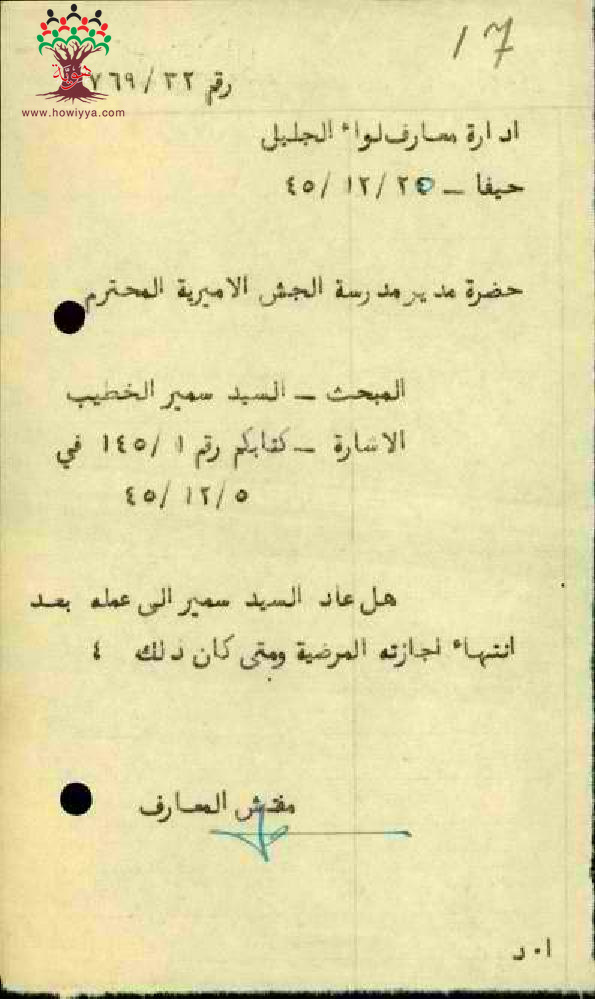 17
رقم ٧٦٩/٣٢
هوية
www.howiyya.com
ادارة معارف لواء الجليل
حيفا - ٤٥/١٢/٢٤
حضرة مدير مدرسة الجش الاميرية المحترم
المبحث - السيد سمير الخطيب
الاشارة - كتابكم رقم ١٤٥/١ في
٤٥/١٢/٥
هل عاد السيد سمير الى عمله بعد
انتهاء اجازته المرضية ومتى كان ذلك ؟
مفتش المعارف
ا٠د